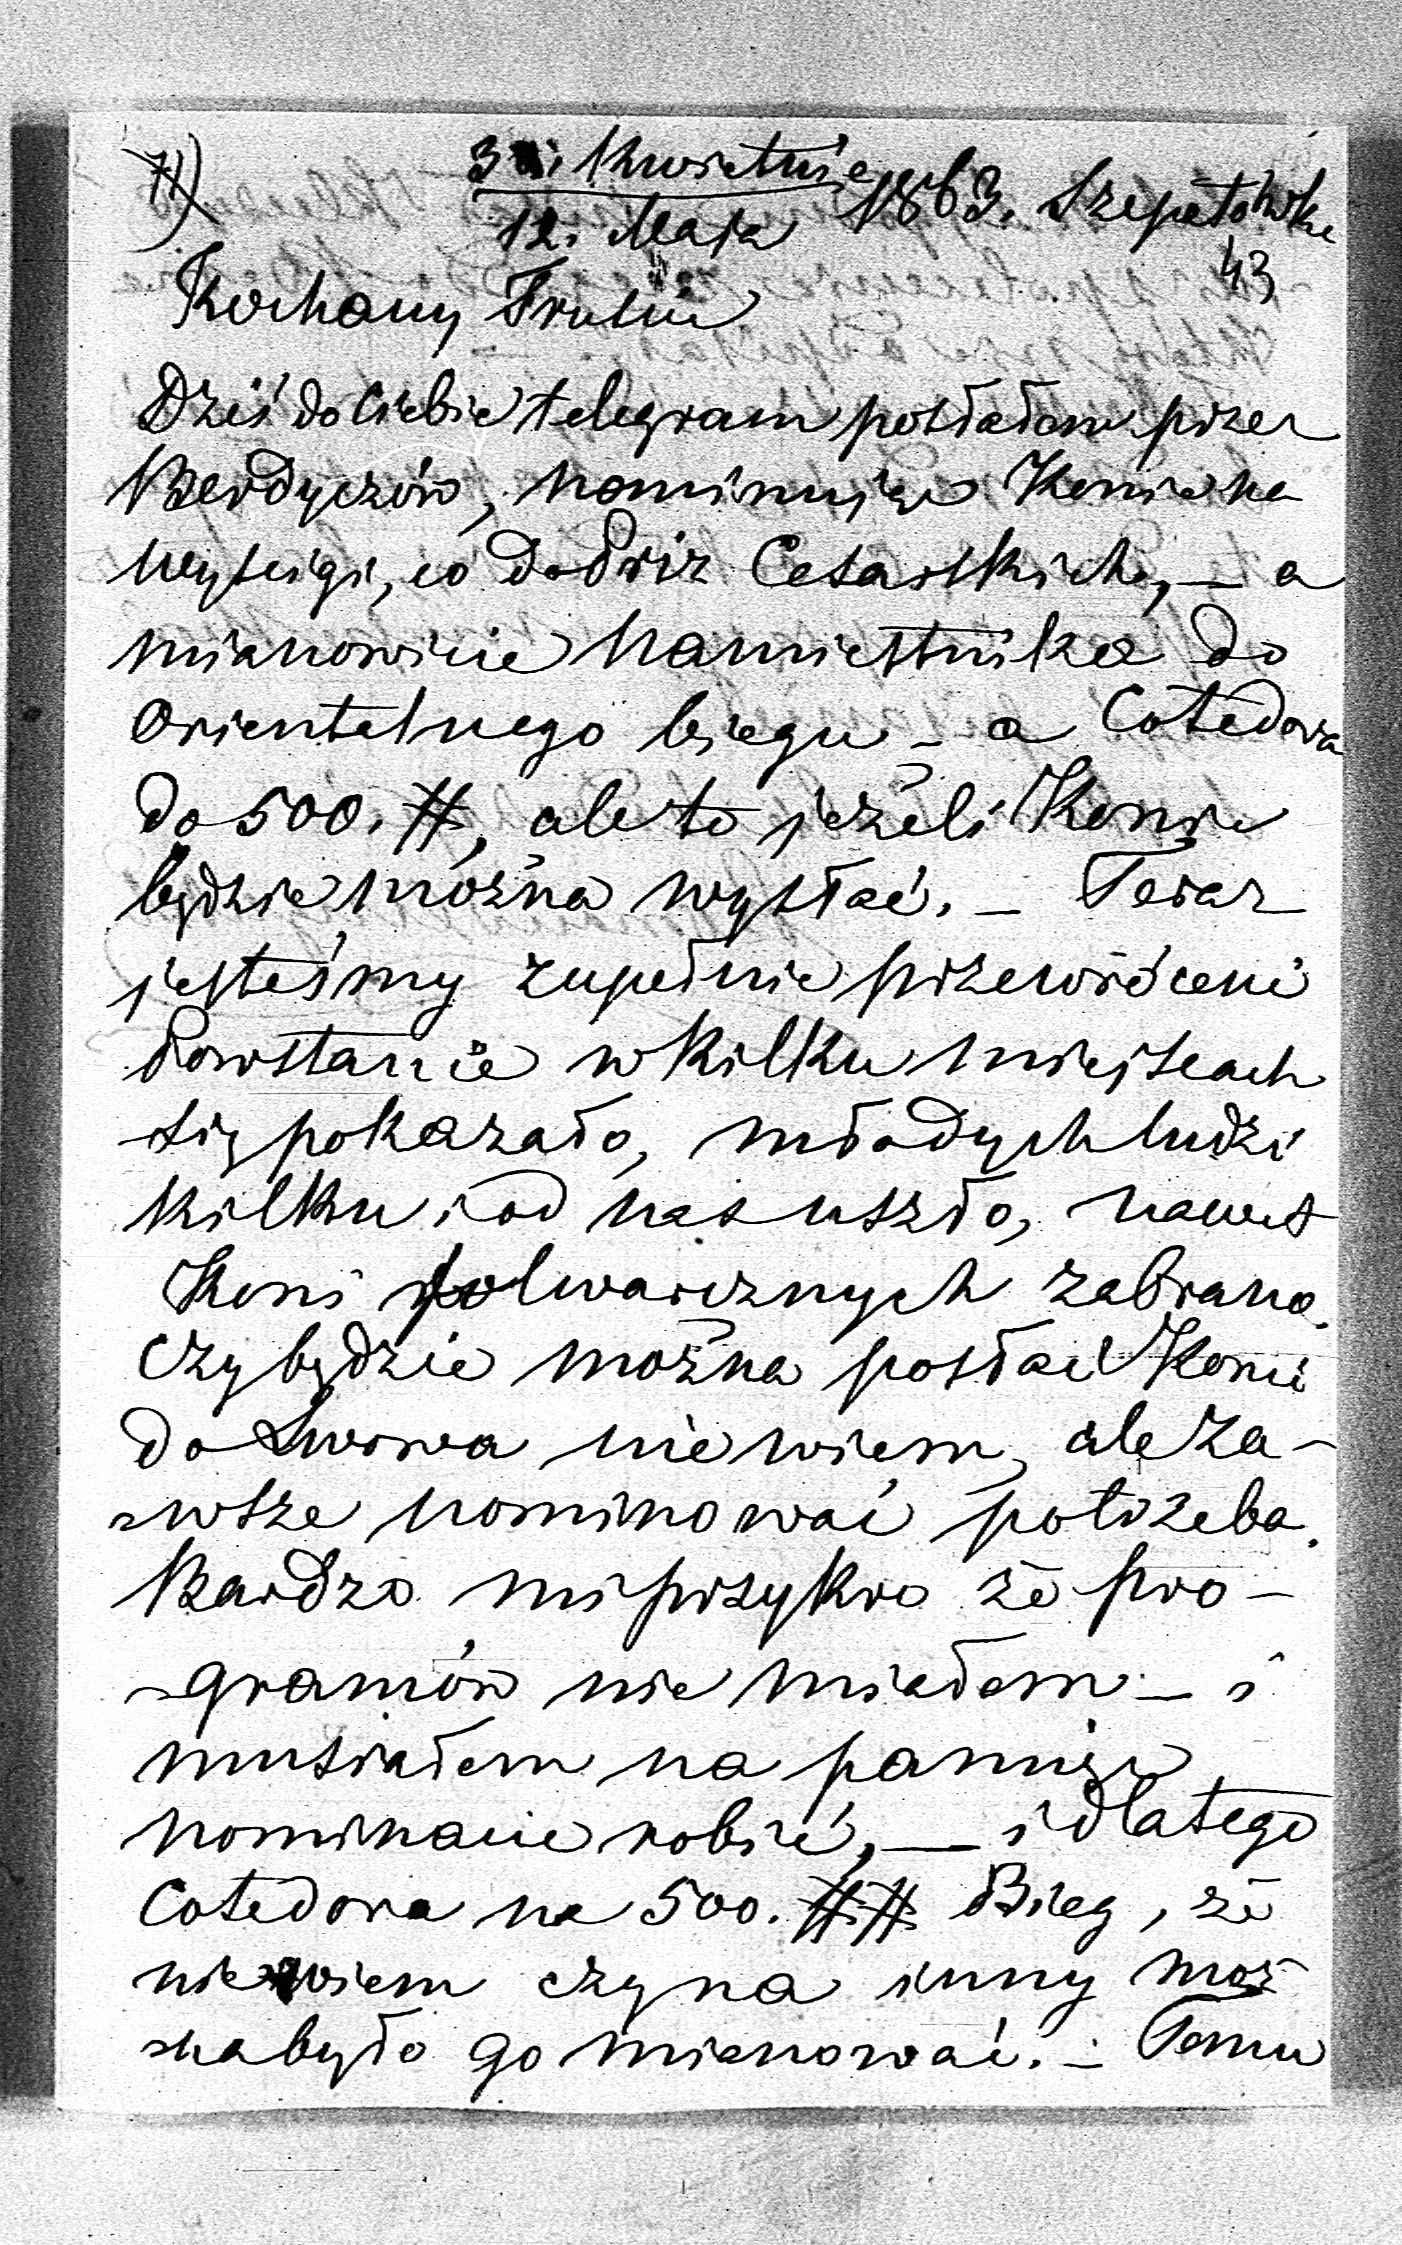 71)
30. Kwietnia
12. Maja 1863. Szepetówka
43
Kochany Frulciu
Dziś do Ciebie telegram posłałem przez
Berdyczów, nominując Konie na
wyścigi, co do Priz Cesarskich, — a
mianowicie Namiestnika do
Orientalnego biegu — a Cotedora
do 500. #, ale to jeżeli Konie
będzie można wysłać. — Teraz
jesteśmy zupełnie przewróceni
Powstanie w kilku miejscach
się pokazało, młodych ludzi
kilku i od nas uszło, nawet
Koni folwarcznych zabrano.
Czy będzie można posłać Konie
do Lwowa nie wiem, ale za-
-wsze nominować potrzeba.
Bardzo mi przykro że pro-
-gramów nie miałem — i
musiałem na pamięć
nominacie robić, — i dlatego
Cotedora na 500. ## Bieg, że
nie wiem czy na inny moż
-na było go mianować. — Temu